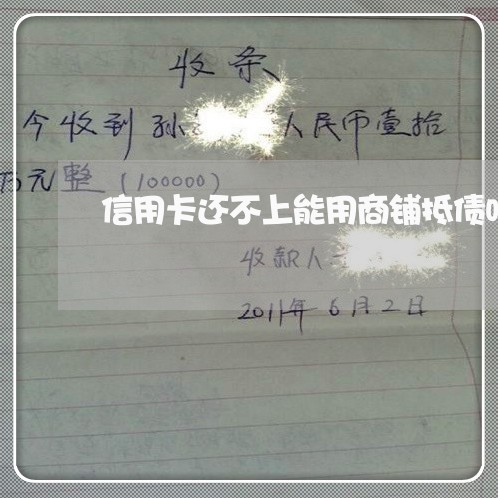 收条
今收到孙 人民币壹拾
万元整(100000)
信用卡还不上能用商铺抵债
收款人
2011年6月2日